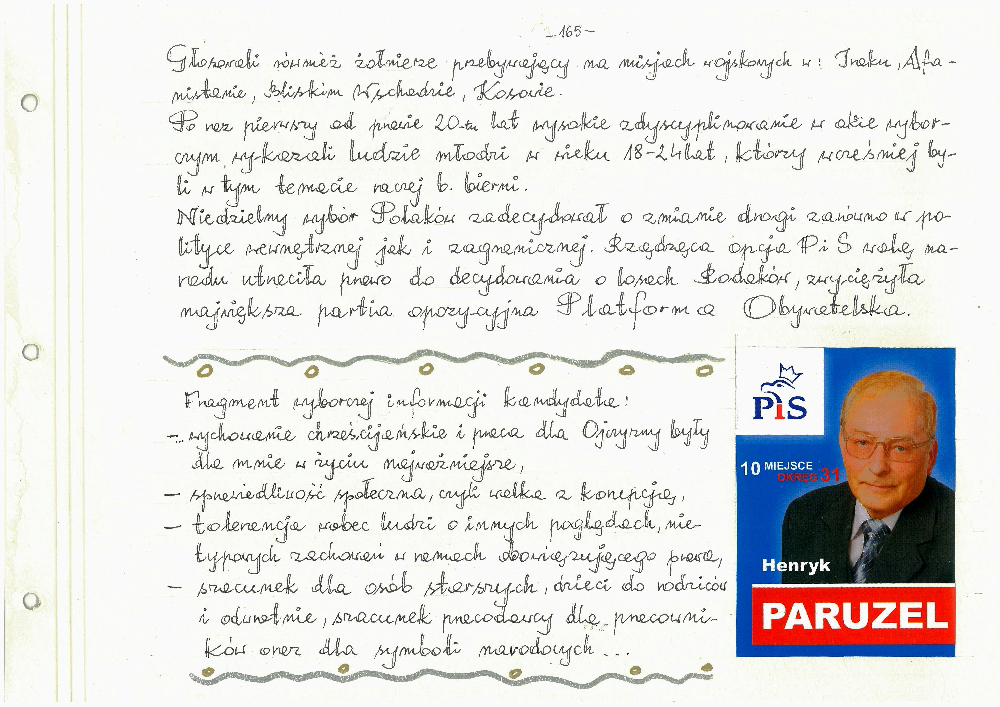 - 165 -
Głosowali również żołnierze przebywający na misjach wojskowych w: Iraku, Afga-
nistanie, Bliskim Wschodzie, Kosowie.
Po raz pierwszy od prawie 20-tu lat wysokie zdyscyplinowanie w akcie wybor-
czym wykazali ludzie młodzi w wieku 18-24 lat, którzy wcześniej by-
li w tym temacie raczej b. bierni.
Niedzielny wybór Polaków zadecydował o zmianie drogi zarówno w po-
lityce wewnętrznej jak i zagranicznej. Rządząca opcja PiS wolą na-
rodu utraciła prawo do decydowania o losach Rodaków, zwyciężyła
największa partia opozycyjna Platforma Obywatelska.
Fragment wyborczej informacji kandydata:
- wychowanie chrześcijańskie i praca dla Ojczyzny były
dla mnie w życiu najważniejsze,
- sprawiedliwość społeczna, czyli walka z korupcją,
- tolerancja wobec ludzi o innych poglądach, nie-
typowych zachowań w ramach obowiązującego prawa,
- szacunek dla osób starszych, dzieci do rodziców
i odwrotnie, szacunek pracodawcy dla pracowni-
ków oraz dla symboli narodowych ...
PiS
10 MIEJSCE
OKRĘG 31
Henryk
PARUZEL